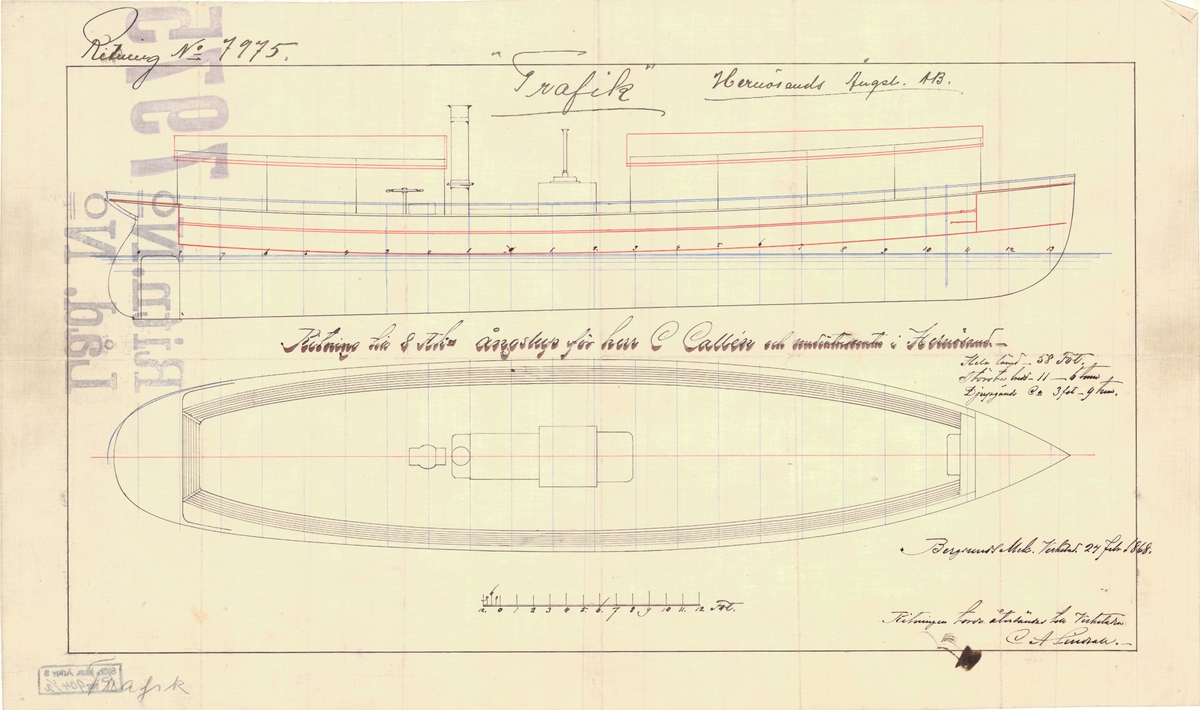 Ritning No 7975.
"Trafik"
Hernösands Ångsl. AB.
7 6 5 4 3 2 1 1 2 3 4 5 6 7 8 9 10 11 12 13
Ritning till 8 ångslup för herr C Callén och i Hernösand.
Hela längd – 58 Fot.
Största bred – 11 – 6 tum
Djupgående Ca 3 fot – 9 tum.
Bergsunds Mek. Verkstad. 24 Febr 1868.
12 6 0 1 2 3 4 5 6 7 8 9 10 11 12 Fot.
Ritningen torde återsändas till Verkstaden
C A Lindvall.
Trafik